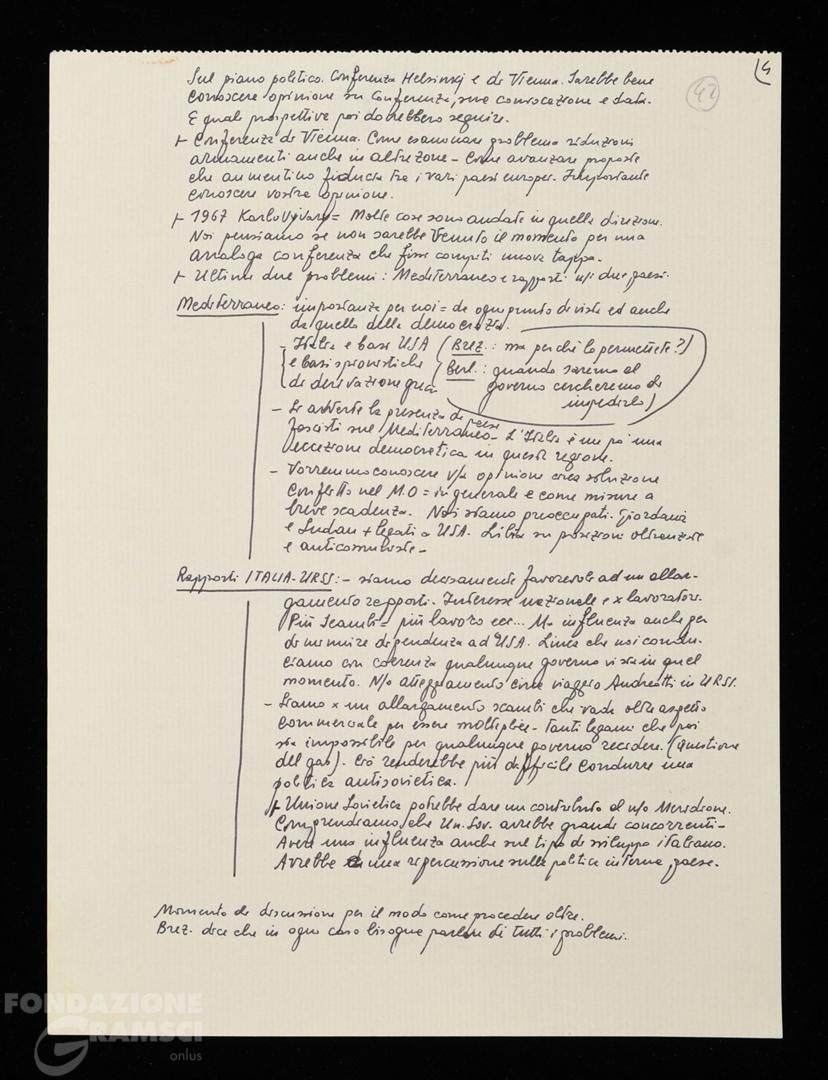 4
42
Sul piano politico. Conferenza Helsinki e di Vienna. Sarebbe bene
conoscere opinione su Conferenza, sua convocazione e data.
E quali prospettive poi dovrebbero seguire.
+ Conferenza di Vienna. Come esaminare problema riduzioni
armamenti anche in altre zone - Come avanzare proposte
che aumentino fiducia tra i vari paesi europei. Importante
conoscere vostra opinione.
+ 1967 Karlovy Vary = Molte cose sono andate in quella direzione.
Noi pensiamo se non sarebbe venuto il momento per una
analoga conferenza che fissi compiti nuova tappa.
+ Ultimi due problemi: Mediterraneo e rapporti n/i due paesi.
Mediterraneo: importanza per noi = da ogni punto di vista ed anche
da quello della democrazia.
- Italia e basi USA (Brez.: ma perché lo permettete?)
{e basi spionistiche (Berl.: quando saremo al
di derivazione greca governo cercheremo di
impedirlo)
- Si avverte la presenza di paesi
fascisti sul Mediterraneo - L'Italia è un po' una
eccezione democratica in questa regione.
- Vorremmo conoscere v/a opinione circa soluzione
conflitto nel M.O = in generale e come misure a
breve scadenza. Noi siamo preoccupati. Giordania
e Sudan + legati a USA. Libia su posizioni oltranziste
e anticomuniste -
Rapporti ITALIA-URSS: - siamo decisamente favorevoli ad un allar-
gamento rapporti. Interesse nazionale e x lavoratori.
Più scambi = più lavoro ecc... Ma influenza anche per
diminuire dipendenza ad USA. Linea che noi condu-
ciamo con coerenza qualunque governo vi sia in quel
momento. N/o atteggiamento circa viaggio Andreotti in URSS.
- Siamo x un allargamento scambi che vada oltre aspetto
commerciale per essere molteplice - Tanti legami che poi
sia impossibile per qualunque governo recidere. (Questione
del gas). Ciò renderebbe più difficile condurre una
politica antisovietica.
+ Unione Sovietica potrebbe dare un contributo al n/o Meridione.
Comprendiamo che Un. Sov. avrebbe grande concorrenti -
Avere una influenza anche sul tipo di sviluppo italiano.
Avrebbe una ripercussione sulla politica interna paese.
Momento di discussione per il modo come procedere oltre.
Brez. dice che in ogni caso bisogna parlare di tutti i problemi.
FONDAZIONE
GRAMSCI
onlus